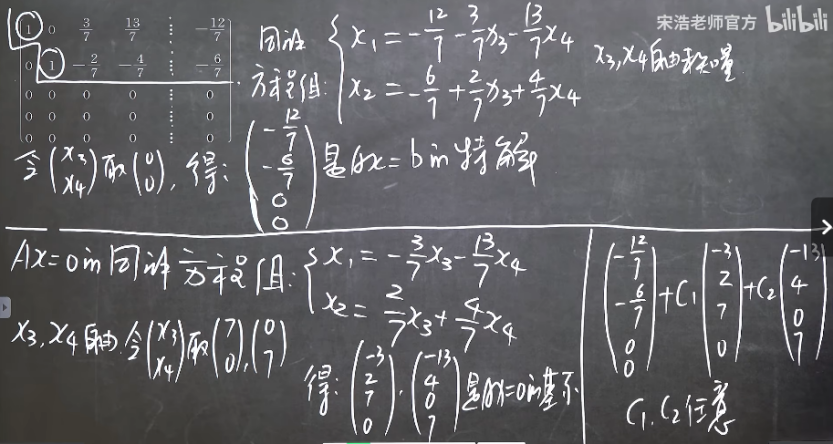 宋浩老师官方 bilibili
1 0 3/7 13/7 ⋮ -12/7
0 1 -2/7 -4/7 ⋮ -6/7
0 0 0 0 ⋮ 0
0 0 0 0 ⋮ 0
0 0 0 0 ⋮ 0
同解方程组: { x₁ = -12/7 - 3/7 x₃ - 13/7 x₄
x₂ = -6/7 + 2/7 x₃ + 4/7 x₄
x₃,x₄自由未知量
令 (x₃ x₄) 取 (0 0), 得: (-12/7 -6/7 0 0) 是Ax=b的特解
Ax=0的同解方程组: { x₁ = -3/7 x₃ - 13/7 x₄
x₂ = 2/7 x₃ + 4/7 x₄
x₃, x₄自由. 令 (x₃ x₄) 取 (7 0), (0 7)
得: (-3 2 7 0), (-13 4 0 7) 是Ax=0的基示
(-12/7 -6/7 0 0) + C₁ (-3 2 7 0) + C₂ (-13 4 0 7)
C₁, C₂任意